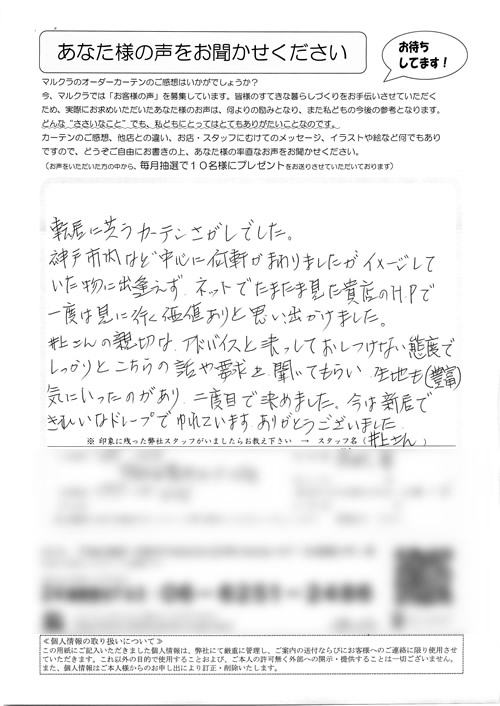 あなた様の声をお聞かせください
お待ち
してます！
マルクラのオーダーカーテンのご感想はいかがでしょうか？
今、マルクラでは「お客様の声」を募集しています。皆様のすてきな暮らしづくりをお手伝いさせていただく
ため、実際にお求めいただいたあなた様のお声は、何よりの励みとなり、また私どもの今後の参考となります。
どんな“ささいなこと”でも、私どもにとってはとてもありがたいことなのです。
カーテンのご感想、他店との違い、お店・スタッフにむけてのメッセージ、イラストや絵など何でもあり
ですので、どうぞご自由にお書きの上、あなた様の率直なお声をお聞かせください。
（お声をいただいた方の中から、毎月抽選で１０名様にプレゼントをお送りさせていただいております）
転居に伴うカーテンさがしでした。
神戸市内など中心に何軒かまわりましたがイメージして
いた物に出逢えず、ネットでたまたま見た貴店のH.Pで
一度は見に行く価値ありと思い出かけました。
井上さんの親切な、アドバイスと決っしておしつけない態度で
しっかりとこちらの話や要求を聞いてもらい、生地も豊富
気にいったのがあり、二度目で決めました。今は新居で
きれいなドレープでゆれています。ありがとうございました。
※ 印象に残った弊社スタッフがいましたらお教え下さい → スタッフ名（井上さん）
06-6251-2486
≪個人情報の取り扱いについて≫
この用紙にご記入いただきました個人情報は、弊社にて厳重に管理し、ご案内の送付ならびにお客様へのご連絡に限り使用させ
ていただきます。これ以外の目的で使用することおよび、ご本人の許可無く外部への開示・提供することは一切ございません。
また、個人情報はご本人様からのお申し出により訂正・削除いたします。